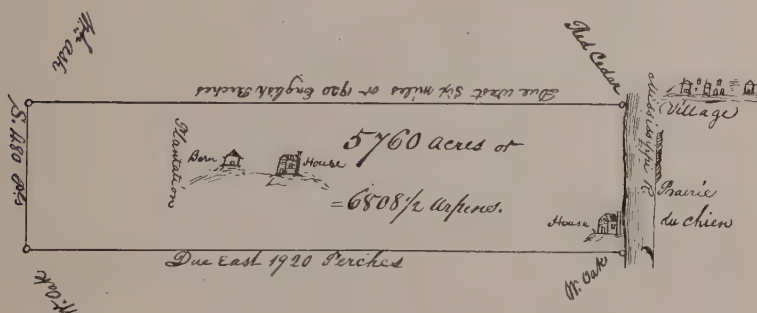 Wh. Ash
Red Cedar
Due West Six miles or 1920 English Perches
Mississippi R
(Village)
S. 480 Po.s
Plantation
Barn
House
5760 acres or
=6808 1/2 Arpens.
House
Prairie
du chien
Due East 1920 Perches
W. Oak
W. Oak